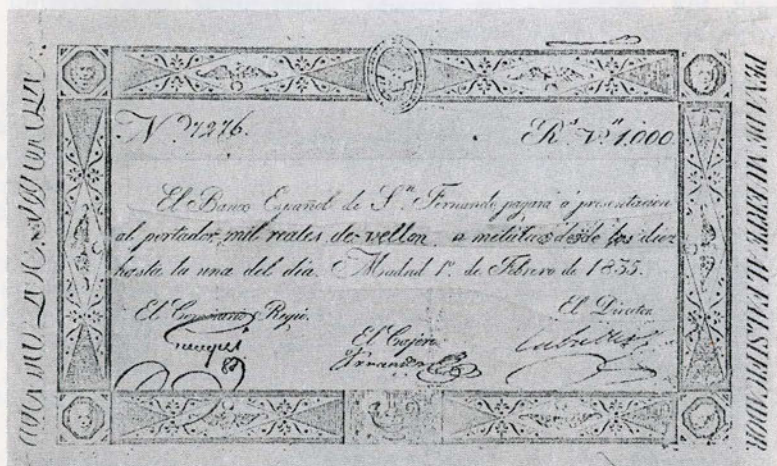 Nº 7276.
Rˢ. vⁿ 1.000
El Banco Español de Sⁿ. Fernando pagará á presentacion
al portador, mil reales de vellon, desde las diez
hasta la una del dia. Madrid 1º. de Febrero de 1835.
El Comisario Regio.
El Director
El Cajero
PENA DE MUERTE AL FALSIFICADOR.